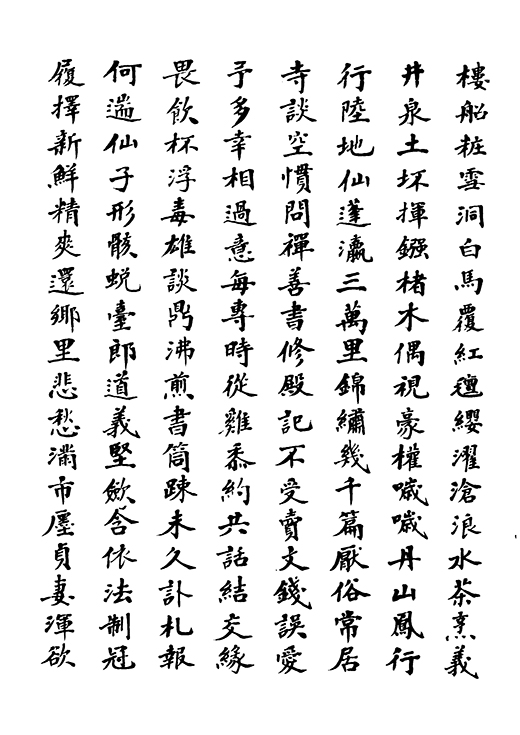 樓船粧雪洞白馬覆紅氊纓濯滄浪水茶烹義
井泉土坏揮鏹楮木偶視豪權噦噦丹山鳳行
行陸地仙蓬瀛三萬里錦繡幾千篇厭俗常居
寺談空慣問禪善書修殿記不受賣文錢誤愛
予多幸相過意每專時從雞黍約共話結交緣
畏飲杯浮毒雄談鼎沸煎書筒踈未久訃札報
何遄仙子形骸蛻臺郎道義堅斂含依法制冠
履擇新鮮精爽還鄉里悲愁滿市廛貞妻渾欲